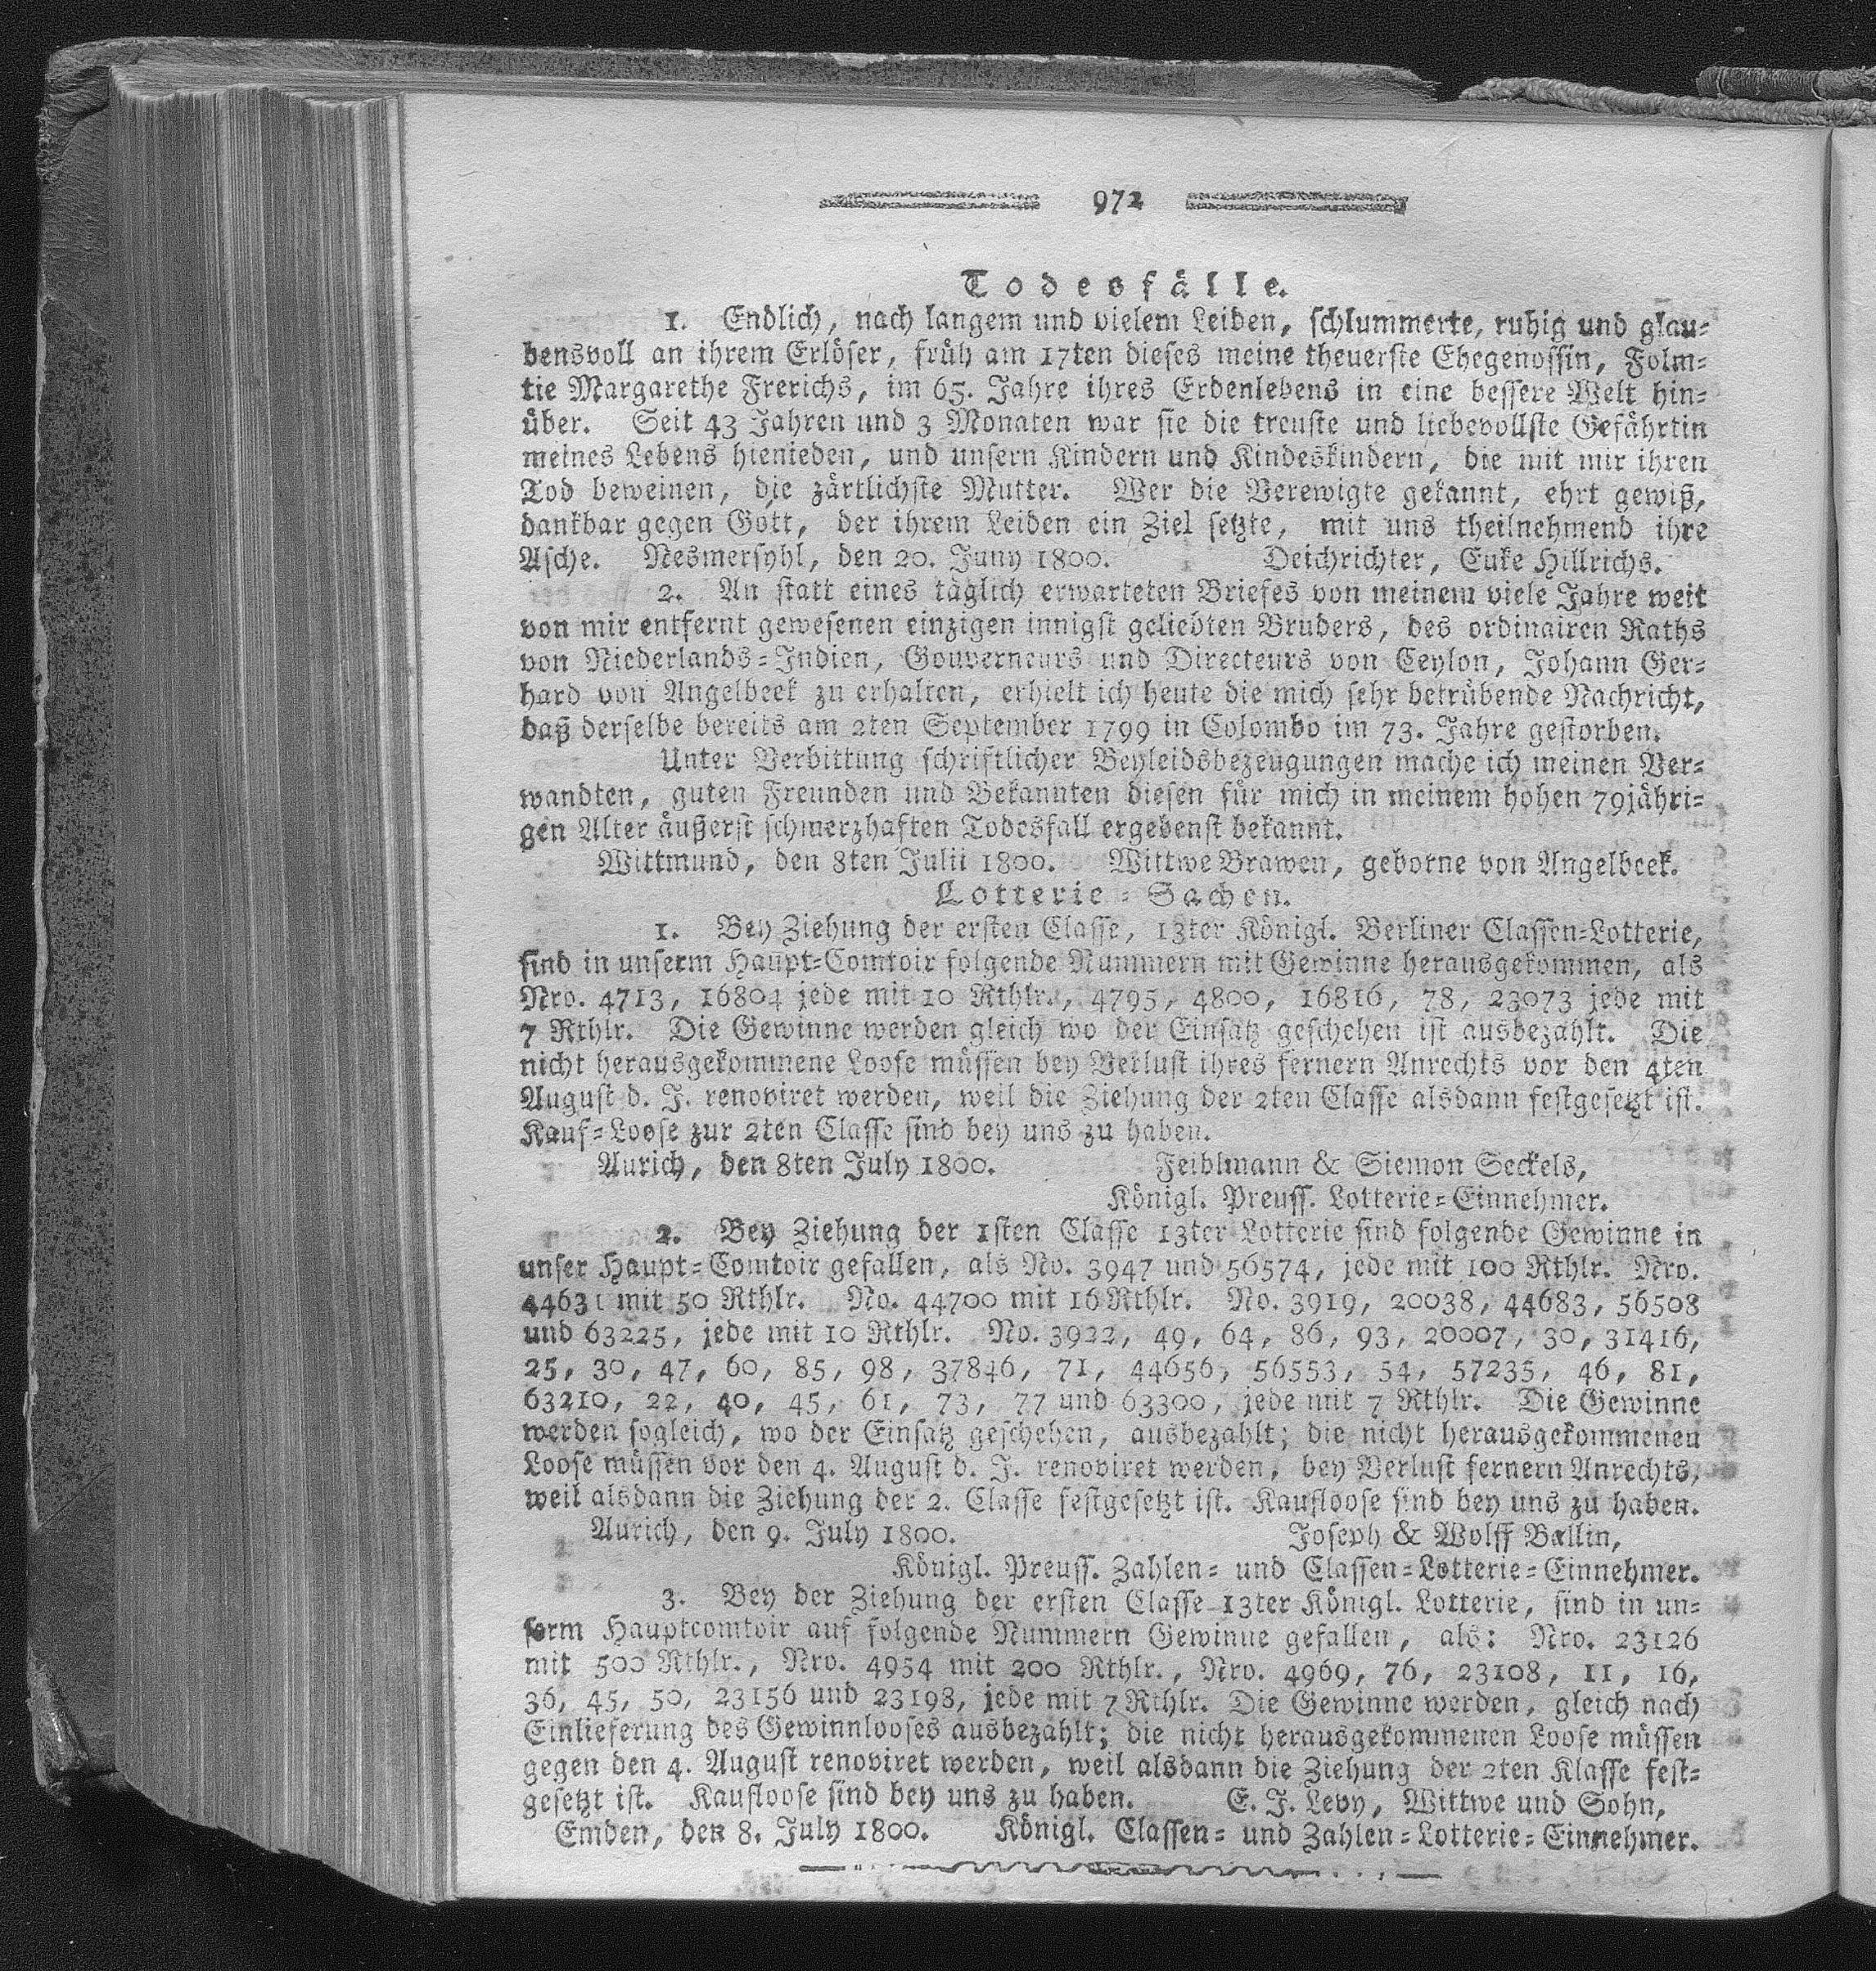 972
Todesfälle.
1. Endlich, nach langem und vielem Leiden, schlummerte, ruhig und glau-
bensvoll an ihrem Erlöser, früh am 17ten dieses meine theuerste Ehegenossin, Folm-
tie Margarethe Frerichs, im 65. Jahre ihres Erdenlebens in eine bessere Welt hin-
über. Seit 43 Jahren und 3 Monaten war sie die treuste und liebevollste Gefährtin
meines Lebens hienieden, und unsern Kindern und Kindeskindern, die mit mir ihren
Tod beweinen, die zärtlichste Mutter. Wer die Verewigte gekannt, ehrt gewiß,
dankbar gegen Gott, der ihrem Leiden ein Ziel setzte, mit uns theilnehmend ihre
Asche. Nesmersyhl, den 20. Juny 1800. Deichrichter, Euke Hillrichs.
2. An statt eines täglich erwarteten Briefes von meinem viele Jahre weit
von mir entfernt gewesenen einzigen innigst geliebten Bruders, des ordinairen Raths
von Niederlands-Indien, Gouverneurs und Directeurs von Ceylon, Johann Ger-
hard von Angelbeek zu erhalten, erhielt ich heute die mich sehr betrübende Nachricht,
daß derselbe bereits am 2ten September 1799 in Colombo im 73. Jahre gestorben.
Unter Verbittung schriftlicher Beyleidsbezeugungen mache ich meinen Ver-
wandten, guten Freunden und Bekannten diesen für mich in meinem hohen 79jähri-
gen Alter äußerst schmerzhaften Todesfall ergebenst bekannt.
Wittmund, den 8ten Julii 1800. Wittwe Brawen, geborne von Angelbeek.
Lotterie-Sachen.
1. Bey Ziehung der ersten Classe, 13ter Königl. Berliner Classen-Lotterie,
sind in unserm Haupt-Comtoir folgende Nummern mit Gewinne herausgekommen, als
Nro. 4713, 16804 jede mit 10 Rthlr., 4795, 4800, 16816, 78, 23073 jede mit
7 Rthlr. Die Gewinne werden gleich wo der Einsatz geschehen ist ausbezahlt. Die
nicht herausgekommene Loose müssen bey Verlust ihres fernern Anrechts vor den 4ten
August d. J. renoviret werden, weil die Ziehung der 2ten Classe alsdann festgesetzt ist.
Kauf-Loose zur 2ten Classe sind bey uns zu haben.
Aurich, den 8ten July 1800. Feiblmann & Siemon Seckels,
Königl. Preuss. Lotterie-Einnehmer.
2. Bey Ziehung der 1sten Classe 13ter Lotterie sind folgende Gewinne in
unser Haupt-Comtoir gefallen, als No. 3947 und 56574, jede mit 100 Rthlr. Nro.
44631 mit 50 Rthlr. No. 44700 mit 16 Rthlr. No. 3919, 20038, 44683, 56508
und 63225, jede mit 10 Rthlr. No. 3922, 49, 64, 86, 93, 20007, 30, 31416,
25, 30, 47, 60, 85, 98, 37846, 71, 44656, 56553, 54, 57235, 46, 81,
63210, 22, 40, 45, 61, 73, 77 und 63300, jede mit 7 Rthlr. Die Gewinne
werden sogleich, wo der Einsatz geschehen, ausbezahlt; die nicht herausgekommenen
Loose müssen vor den 4. August d. J. renoviret werden, bey Verlust fernern Anrechts,
weil alsdann die Ziehung der 2. Classe festgesetzt ist. Kaufloose sind bey uns zu haben.
Aurich, den 9. July 1800. Joseph & Wolff Ballin,
Königl. Preuss. Zahlen- und Classen-Lotterie-Einnehmer.
3. Bey der Ziehung der ersten Classe 13ter Königl. Lotterie, sind in un-
serm Hauptcomtoir auf folgende Nummern Gewinne gefallen, als: Nro. 23126
mit 500 Rthlr., Nro. 4954 mit 200 Rthlr., Nro. 4969, 76, 23108, 11, 16,
36, 45, 50, 23156 und 23198, jede mit 7 Rthlr. Die Gewinne werden, gleich nach
Einlieferung des Gewinnlooses ausbezahlt; die nicht herausgekommenen Loose müssen
gegen den 4. August renoviret werden, weil alsdann die Ziehung der 2ten Klasse fest-
gesetzt ist. Kaufloose sind bey uns zu haben. E. J. Levy, Wittwe und Sohn,
Emden, den 8. July 1800. Königl. Classen- und Zahlen-Lotterie-Einnehmer.